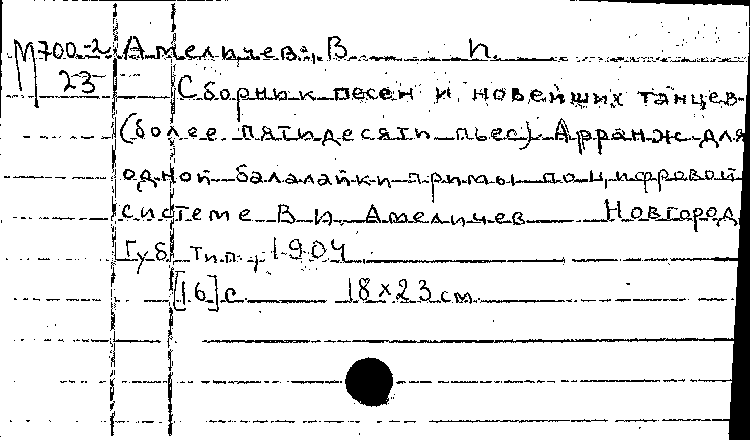 М700-2 Амеличев, В П.
23 Сборник песен и новейших танцев
(более пятидесяти пьес) Арранж для
одной балалайки примы по цифровой
системе В П Амеличев Новгород
Губ тип, 1904
[16] с 18х23 см